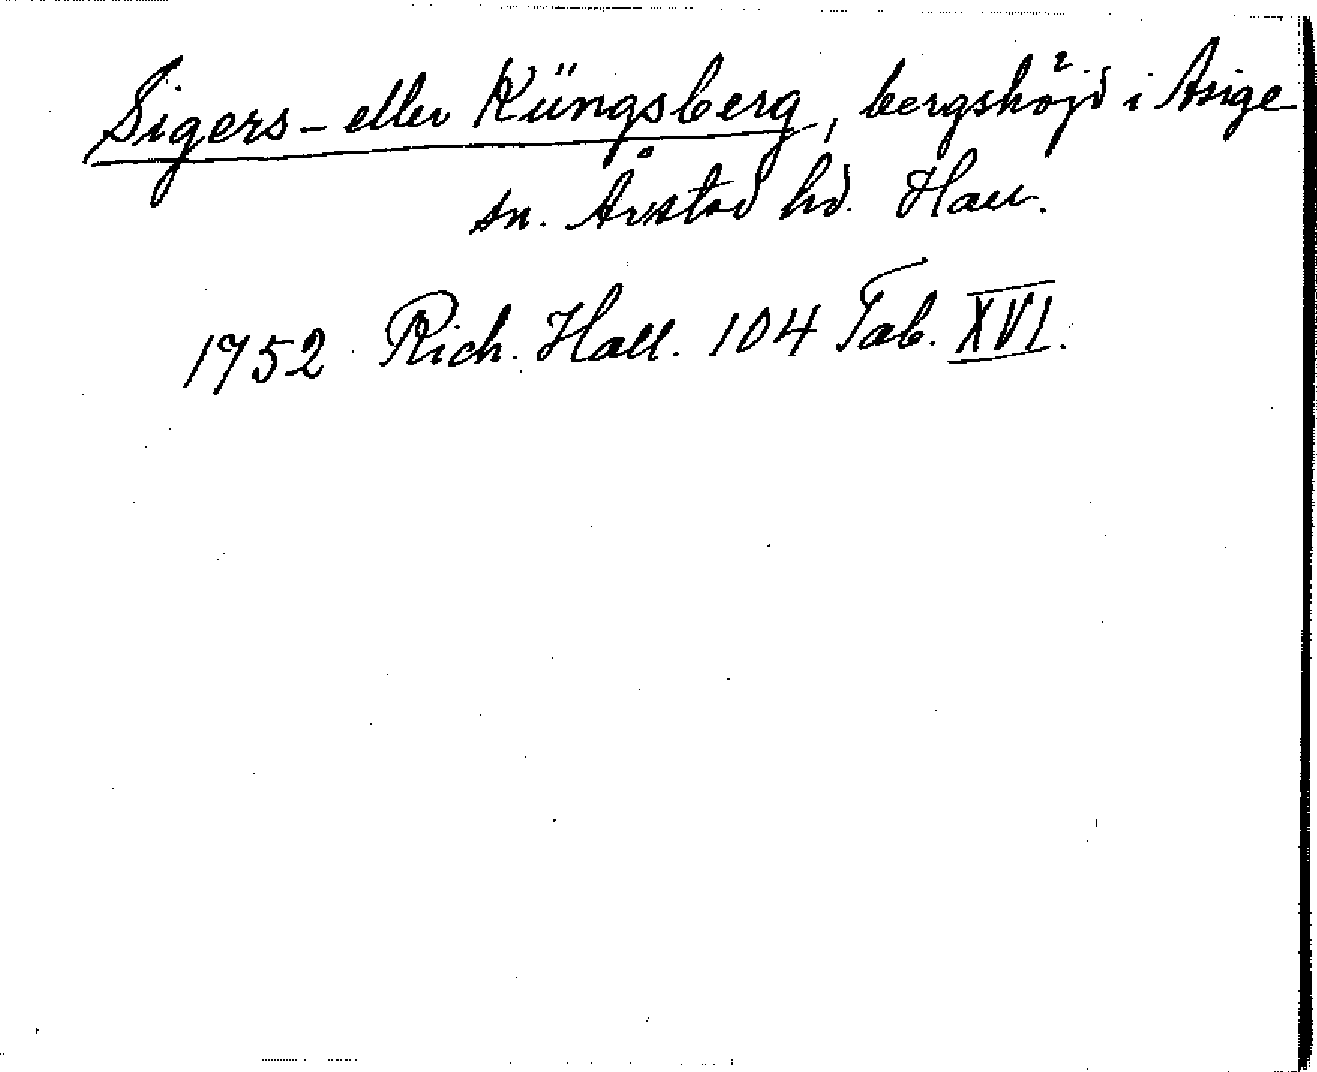 Sigers- eller Küngsberg, bergshöjd i Asige
sn. Årstad hd. Hall.
1752 Rich. Hall. 104 Tab. XVI.